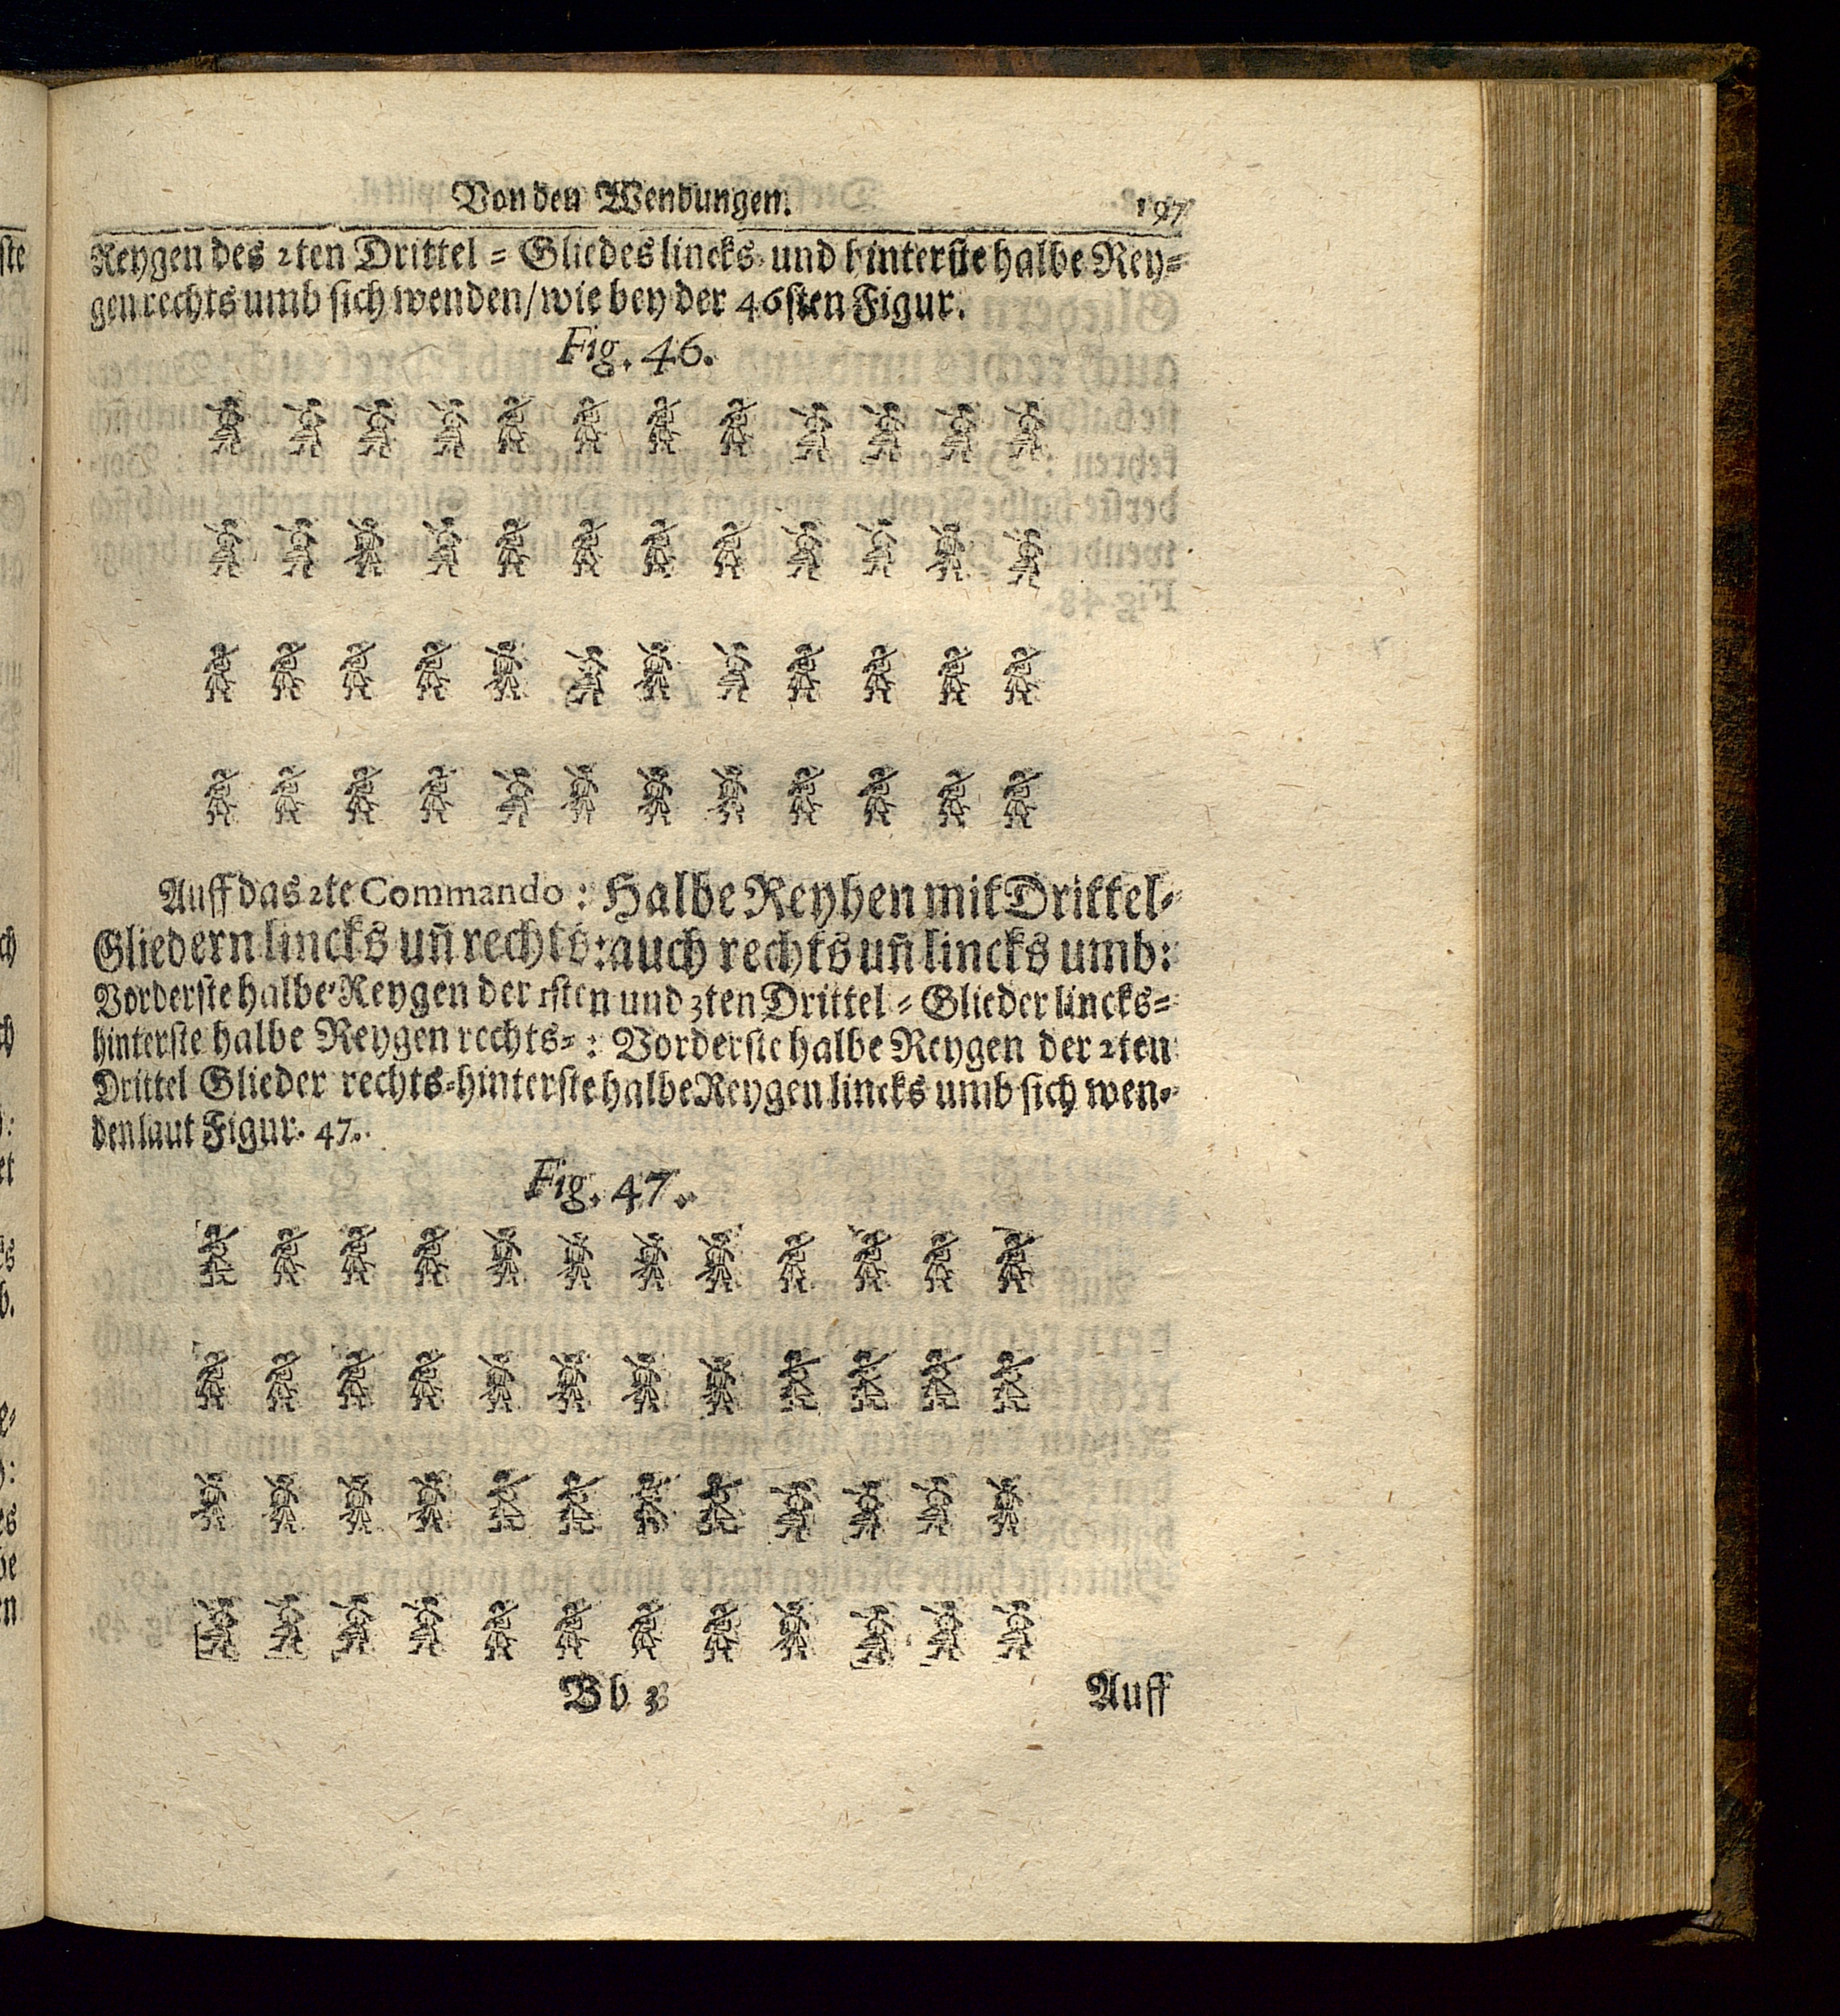 Von den Wendungen. 197
Reygen des 2ten Drittel = Gliedes lincks und hinterste halbe Rey=
gen rechts umb sich wenden / wie bey der 46sten Figur.
Fig. 46.
Auff das 2te Commando: Halbe Reyhen mit Drittel=
Gliedern lincks uñ rechts: auch rechts uñ lincks umb:
Vorderste halbe Reygen der 1sten und 3ten Drittel = Glieder lincks=
hinterste halbe Reygen rechts=: Vorderste halbe Reygen der 2ten
Drittel Glieder rechts=hinterste halbe Reygen lincks umb sich wen=
den laut Figur. 47.
Fig. 47.
Bb 3 Auff